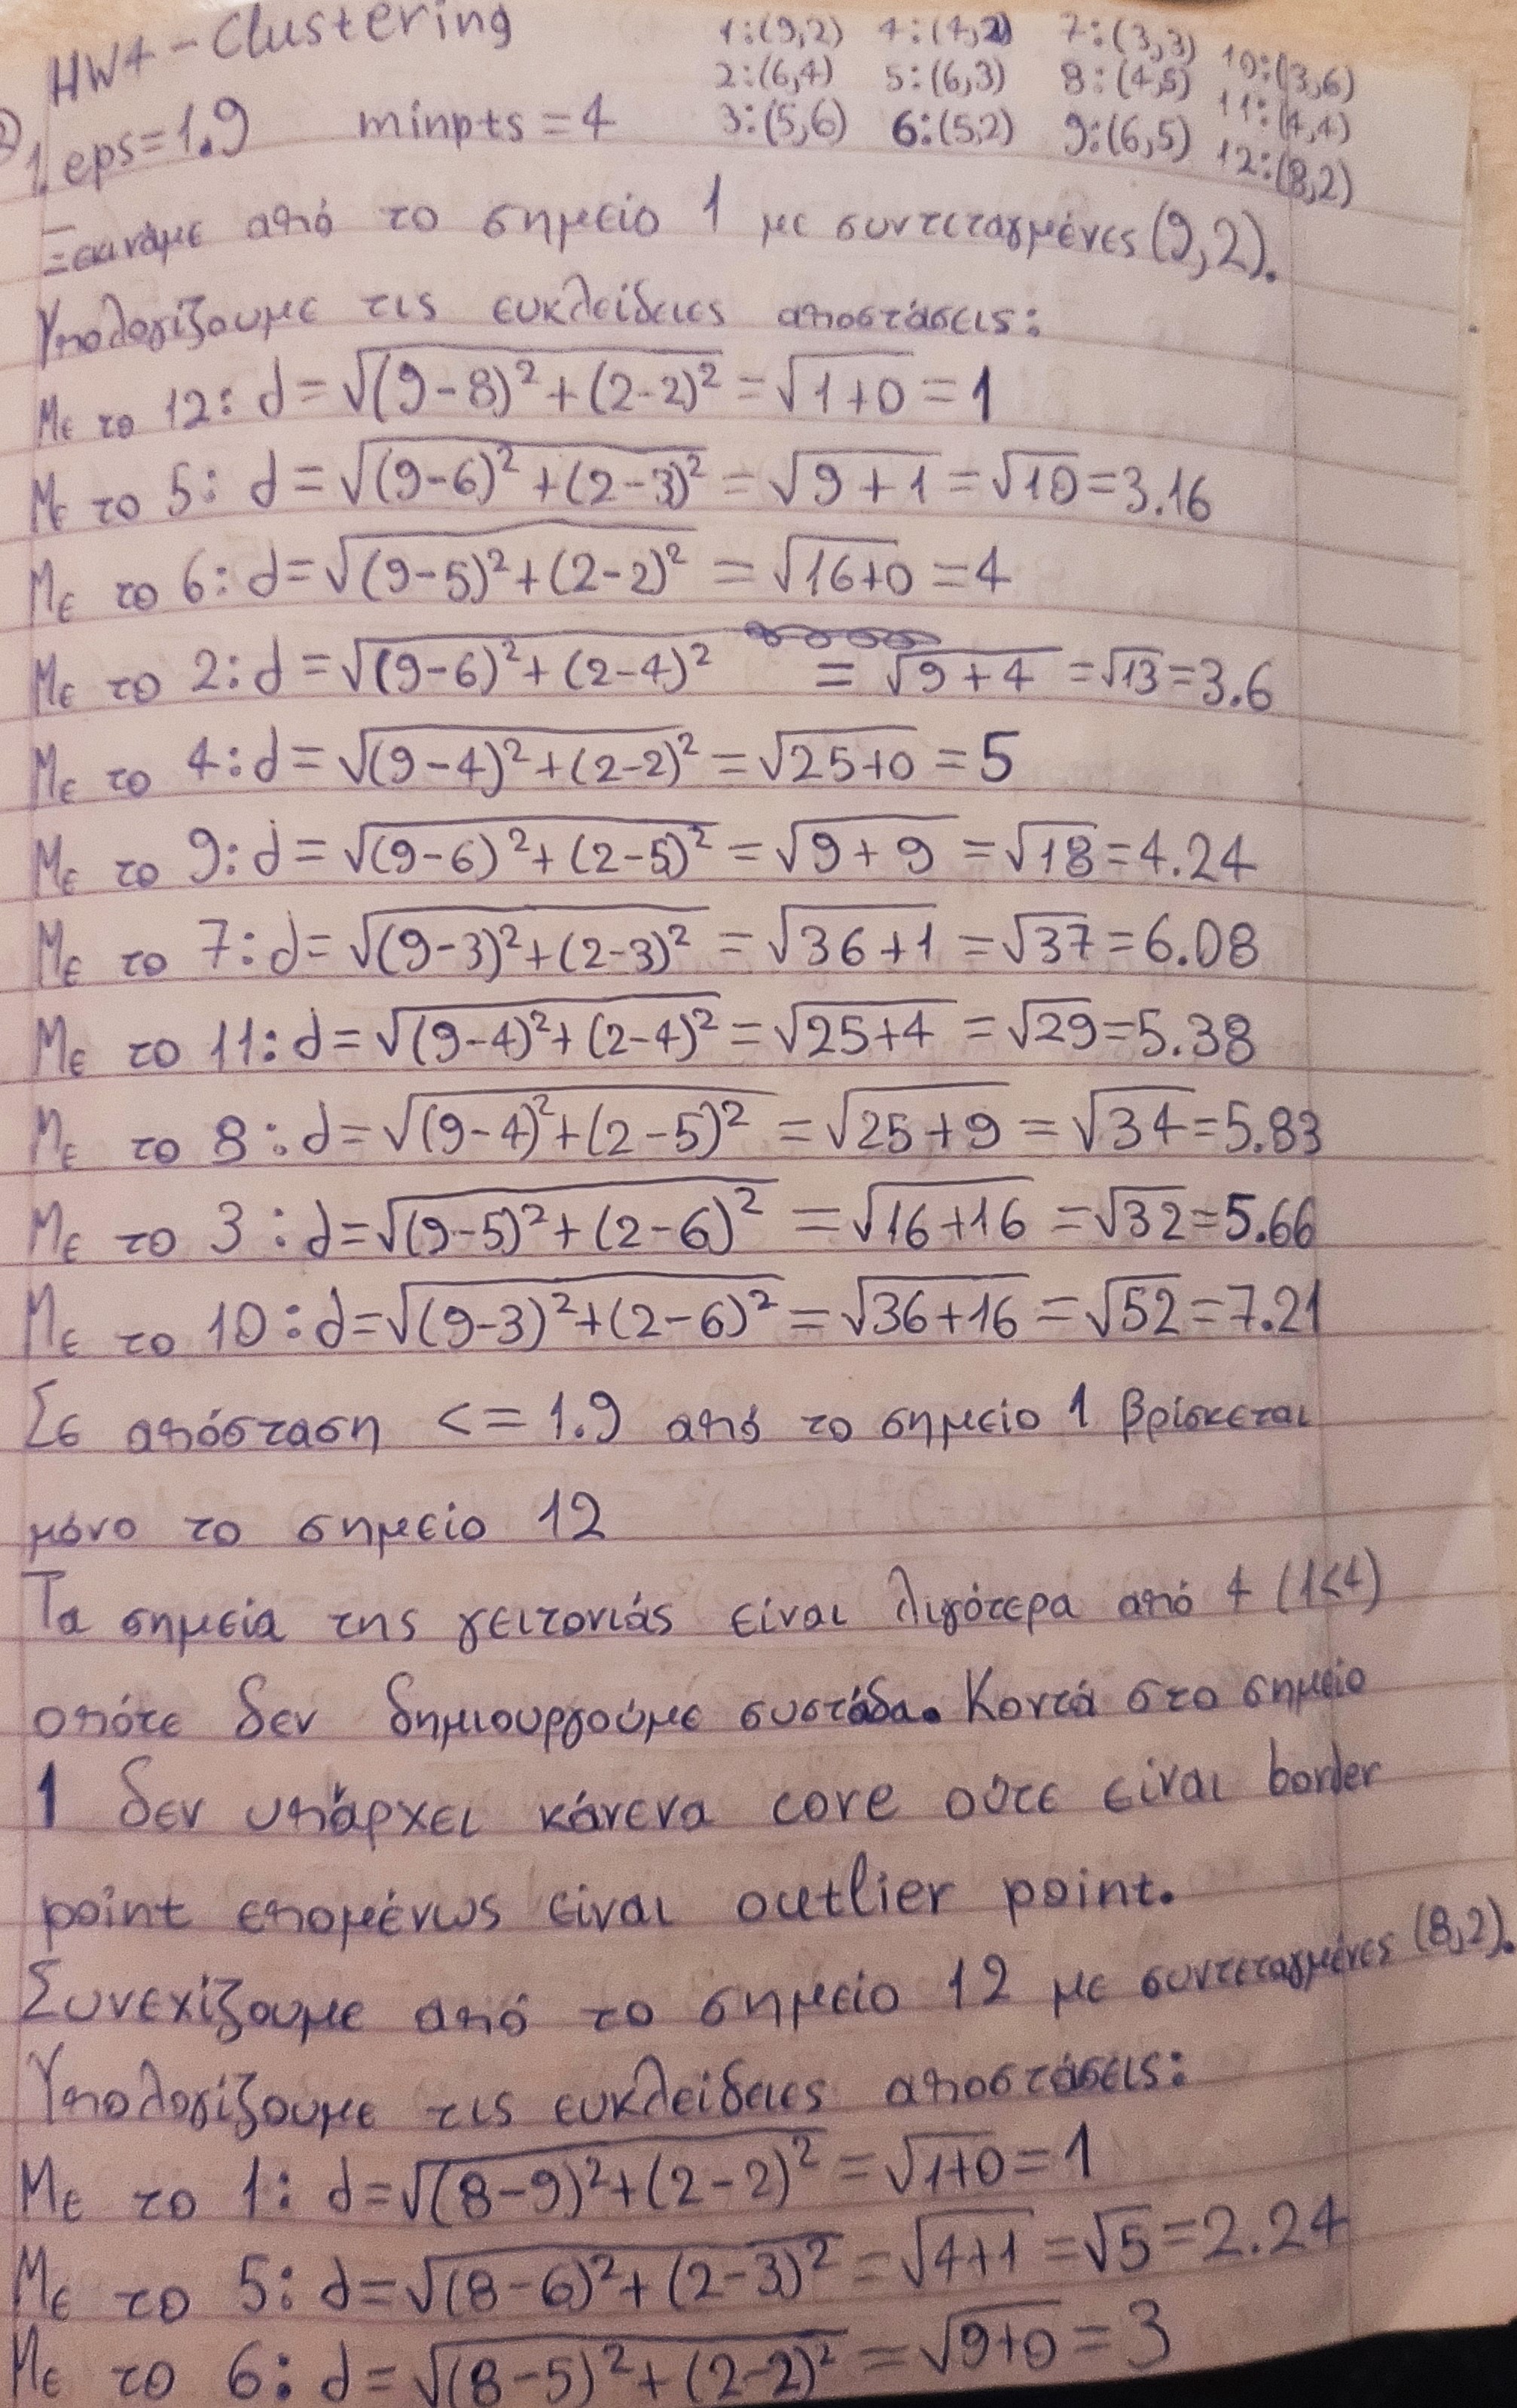 HW4 - Clustering
1:(9,2) 4:(4,2) 7:(3,3) 10:(3,6)
2:(6,4) 5:(6,3) 8:(4,5) 11:(4,4)
3:(5,6) 6:(5,2) 9:(6,5) 12:(8,2)
1. eps=1.9 minpts=4
Ξεκινάμε από το σημείο 1 με συντεταγμένες (9,2).
Υπολογίζουμε τις ευκλείδειες αποστάσεις:
Με το 12: d=√(9-8)²+(2-2)² =√1+0 =1
Με το 5: d=√(9-6)²+(2-3)² =√9+1 =√10=3.16
Με το 6: d=√(9-5)²+(2-2)² =√16+0 =4
Με το 2: d=√(9-6)²+(2-4)² =√9+4 =√13=3.6
Με το 4: d=√(9-4)²+(2-2)² =√25+0 =5
Με το 9: d=√(9-6)²+(2-5)² =√9+9 =√18=4.24
Με το 7: d=√(9-3)²+(2-3)² =√36+1 =√37=6.08
Με το 11: d=√(9-4)²+(2-4)² =√25+4 =√29=5.38
Με το 8: d=√(9-4)²+(2-5)² =√25+9 =√34=5.83
Με το 3: d=√(9-5)²+(2-6)² =√16+16 =√32=5.66
Με το 10: d=√(9-3)²+(2-6)² =√36+16 =√52=7.21
Σε απόσταση <= 1.9 από το σημείο 1 βρίσκεται
μόνο το σημείο 12
Τα σημεία της γειτονιάς είναι λιγότερα από 4 (1<4)
οπότε δεν δημιουργούμε συστάδα. Κοντά στο σημείο
1 δεν υπάρχει κάνενα core ούτε είναι border
point επομένως είναι outlier point.
Συνεχίζουμε από το σημείο 12 με συντεταγμένες (8,2).
Υπολογίζουμε τις ευκλείδειες αποστάσεις:
Με το 1: d=√(8-9)²+(2-2)² =√1+0=1
Με το 5: d=√(8-6)²+(2-3)² =√4+1 =√5=2.24
Με το 6: d=√(8-5)²+(2-2)² =√9+0=3